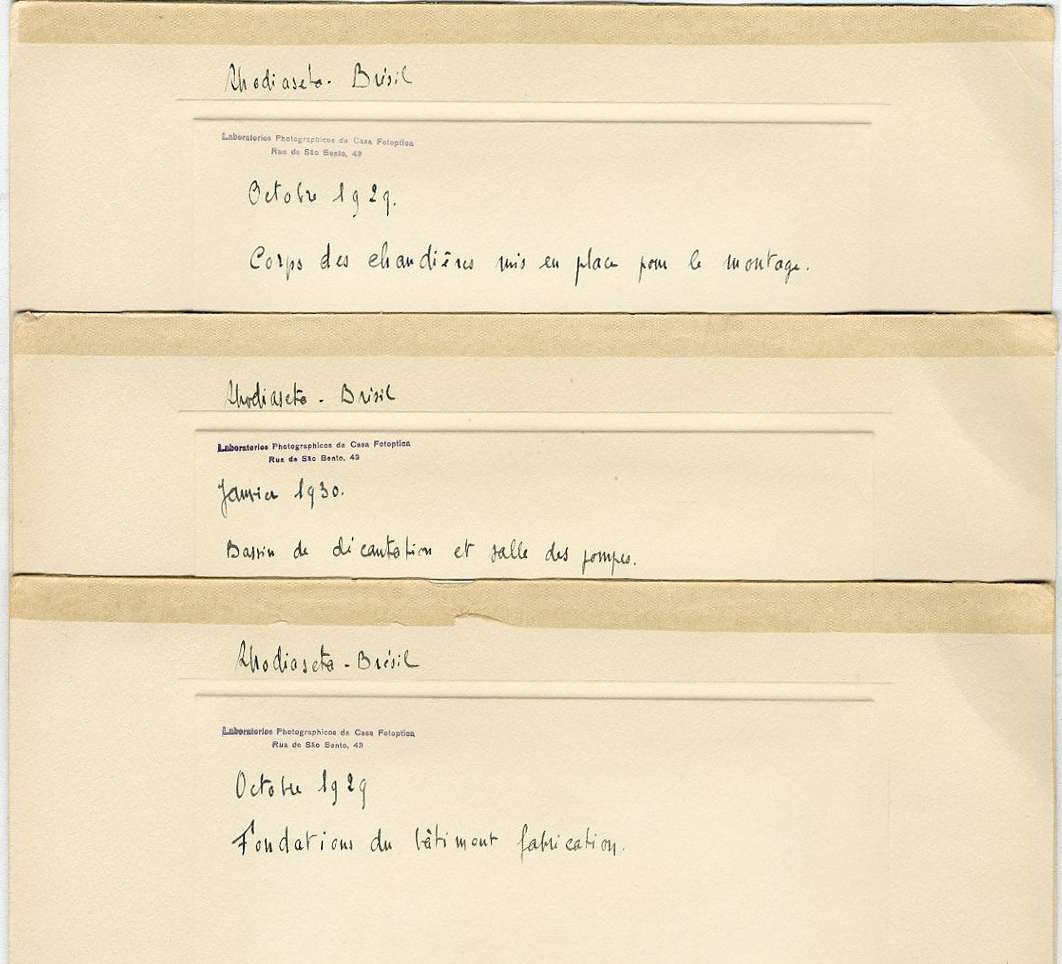 Rhodiaseta - Brésil
Laboratorios Photographicos da Casa Fotoptica
Rua de São Bento, 49
Octobre 1929.
Corps des chaudières mis en place pour le montage.
Rhodiaseta - Brésil
Laboratorios Photographicos da Casa Fotoptica
Rua de São Bento, 49
Janvier 1930.
Bassin de décantation et salle des pompes.
Rhodiaseta - Brésil
Laboratorios Photographicos da Casa Fotoptica
Rua de São Bento, 49
Octobre 1929
Fondations du bâtiment fabrication.